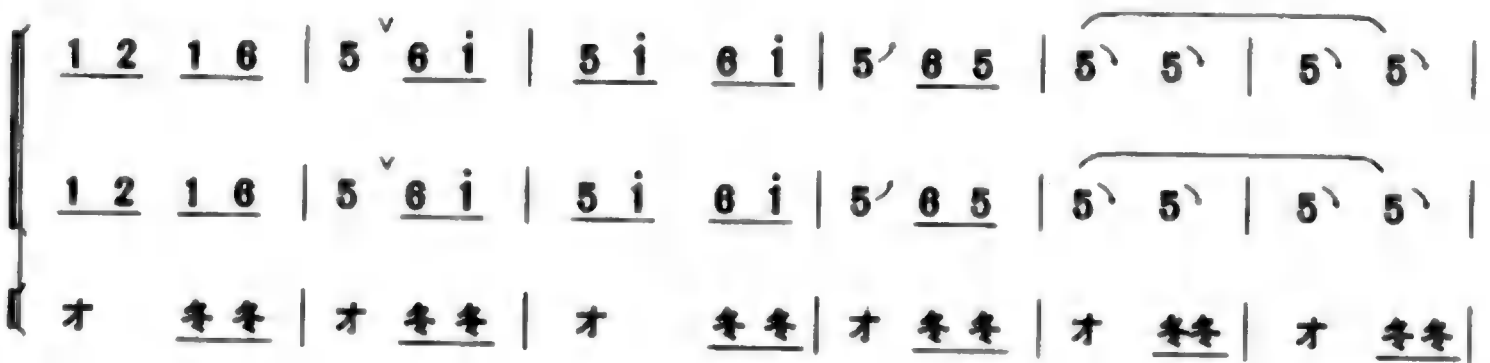 1 2 1 6 | 5 ˅ 6 i | 5 i 6 i | 5 6 5 | 5 5 | 5 5 |
1 2 1 6 | 5 ˅ 6 i | 5 i 6 i | 5 6 5 | 5 5 | 5 5 |
才 冬冬 | 才 冬冬 | 才 冬冬 | 才 冬冬 | 才 冬冬 | 才 冬冬 |